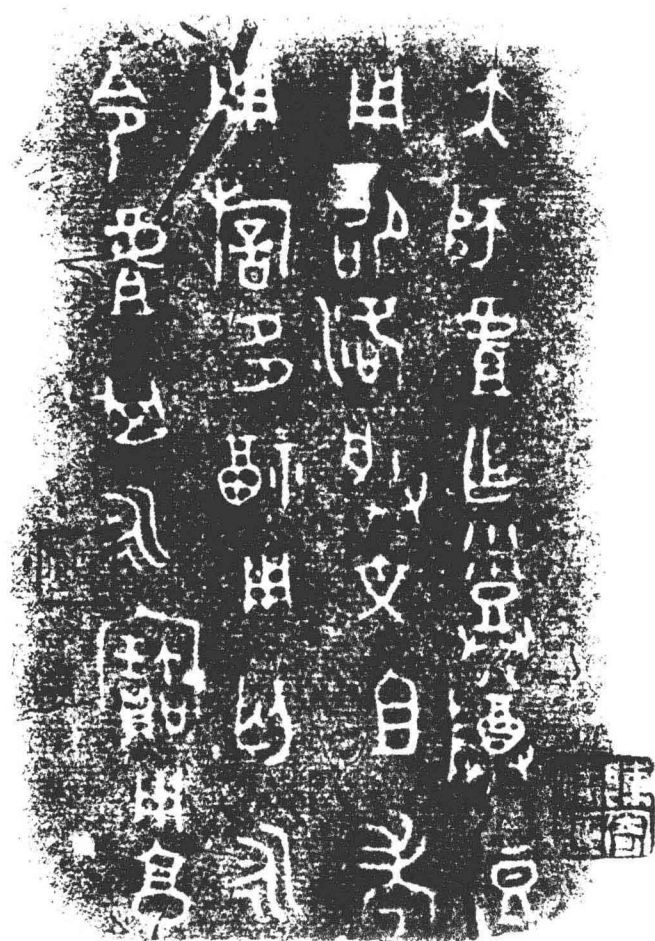 大師虘乍䵼尊豆
用卲洛朕文且考
用𣄨多福用匄永
令虘其永寶用享